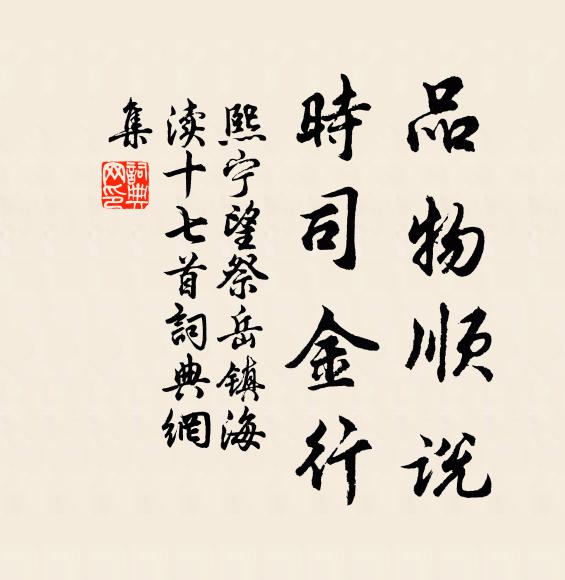 品物顺说
時司金行
熙宁望祭岳镇海
渎十七首詞典網
集
詞典
网印